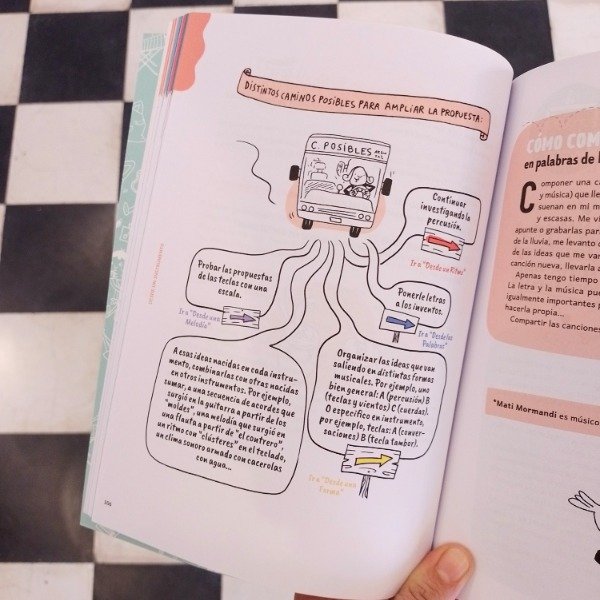 DISTINTOS CAMINOS POSIBLES PARA AMPLIAR LA PROPUESTA:
C. POSIBLES
Continuar
investigando la
percusión.
Ir a "Desde un Ritmo"
Probar las propuestas
de las teclas con una
escala.
Ir a "Desde una
Melodía"
Ponerle letras
a los inventos.
Ir a "Desde las
Palabras"
A esas ideas nacidas en cada instru-
mento, combinarlas con otras nacidas
en otros instrumentos. Por ejemplo,
sumar, a una secuencia de acordes que
surgió en la guitarra a partir de los
"moldes", una melodía que surgió en
una flauta a partir de "el contrero",
un ritmo con "clústeres" en el teclado,
un clima sonoro armado con cacerolas
con agua...
Organizar las ideas que van
saliendo en distintas formas
musicales. Por ejemplo, uno
bien general: A (percusión) B
(teclas y vientos) C (cuerdas).
O específico en instrumento,
por ejemplo, teclas: A (conver-
saciones) B (tecla tambor).
Ir a "Desde una
Forma"
DESDE UN INSTRUMENTO
CÓMO COM
en palabras de
Componer una ca
y música) que lle
suenan en mi m
y escasas. Me vi
apunte o grabarlas par
de la lluvia, me levanto
de las ideas que me van
canción nueva, llevarla a
Apenas tengo tiempo
La letra y la música pue
igualmente importantes p
hacerla propia...
Compartir las canciones
*Mati Mormandi es músico